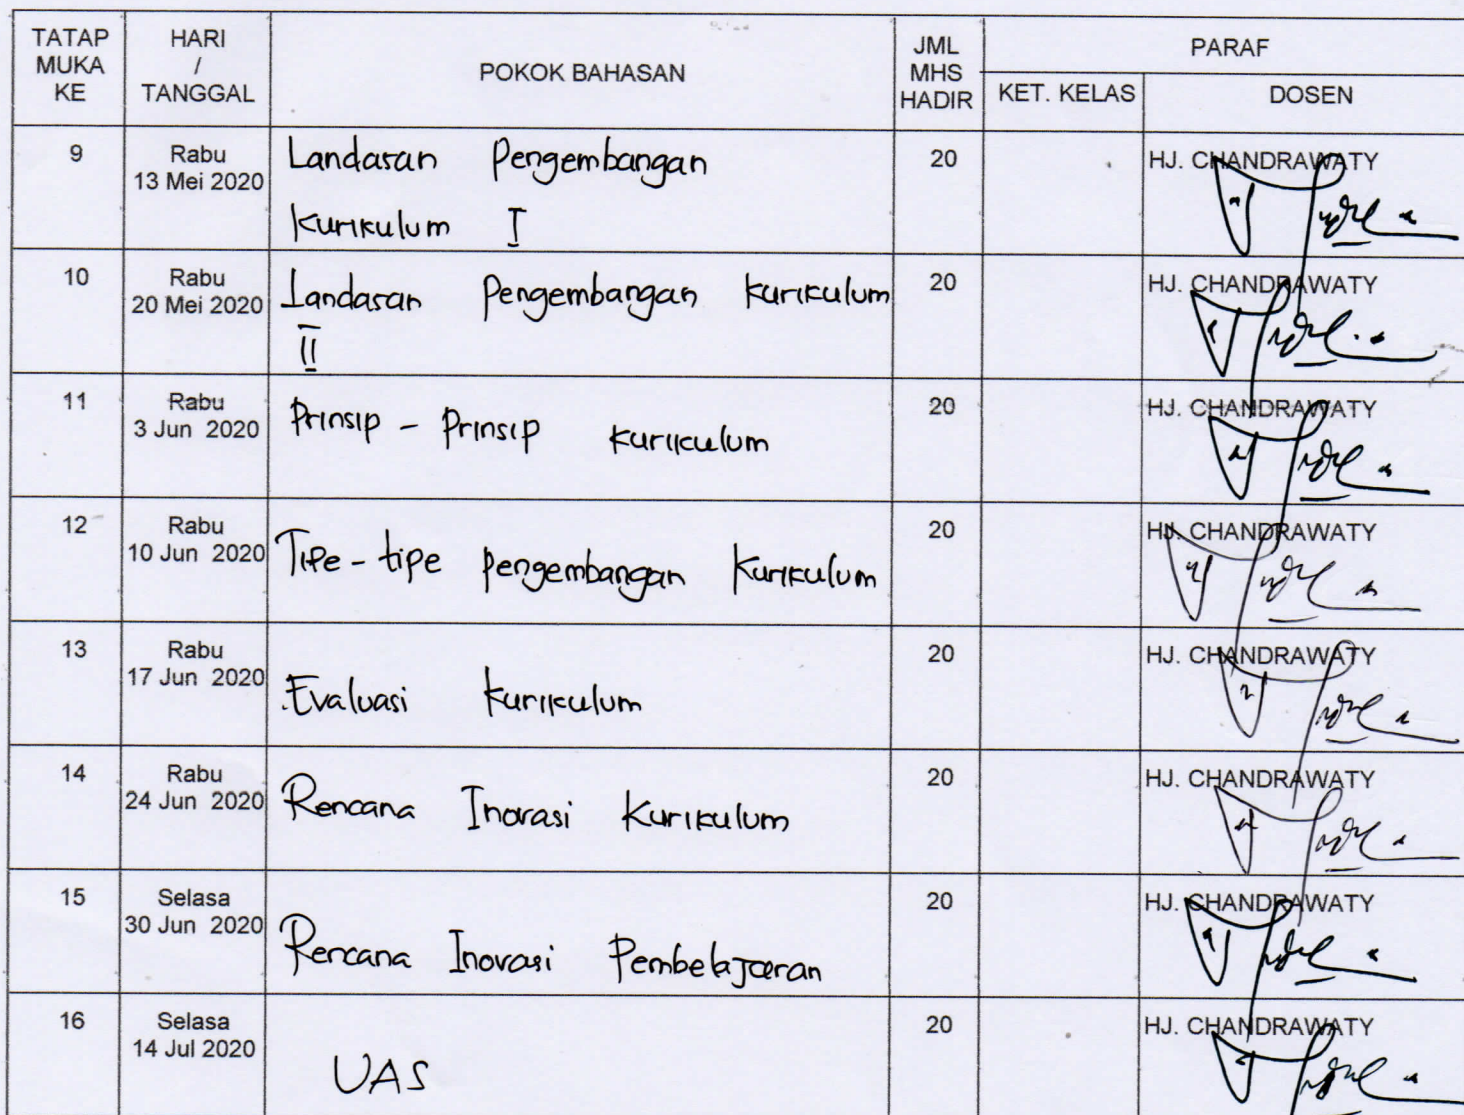 TATAP MUKA KE
HARI / TANGGAL
POKOK BAHASAN
JML MHS HADIR
PARAF
KET. KELAS
DOSEN
9
Rabu
13 Mei 2020
Landasan Pengembangan
Kurikulum I
20
HJ. CHANDRAWATY
10
Rabu
20 Mei 2020
Landasan Pengembangan Kurikulum
II
20
HJ. CHANDRAWATY
11
Rabu
3 Jun 2020
Prinsip - Prinsip Kurikulum
20
HJ. CHANDRAWATY
12
Rabu
10 Jun 2020
Tipe - tipe pengembangan Kurikulum
20
HJ. CHANDRAWATY
13
Rabu
17 Jun 2020
Evaluasi Kurikulum
20
HJ. CHANDRAWATY
14
Rabu
24 Jun 2020
Rencana Inovasi Kurikulum
20
HJ. CHANDRAWATY
15
Selasa
30 Jun 2020
Rencana Inovasi Pembelajaran
20
HJ. CHANDRAWATY
16
Selasa
14 Jul 2020
UAS
20
HJ. CHANDRAWATY